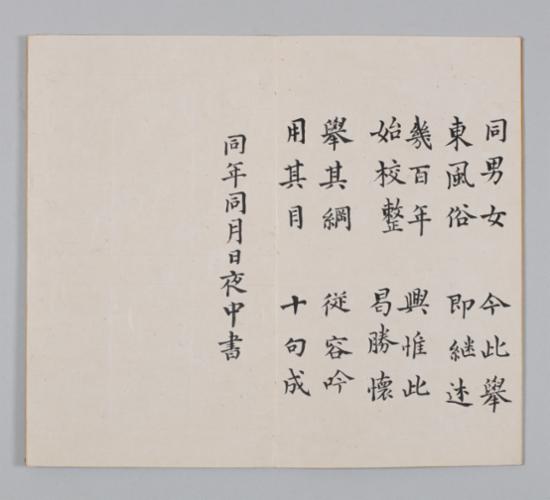 同男女 今此舉
東風俗 即継述
幾百年 興惟此
始校整 昌勝懷
舉其綱 従容吟
用其目 十句成
同年同月日夜中書